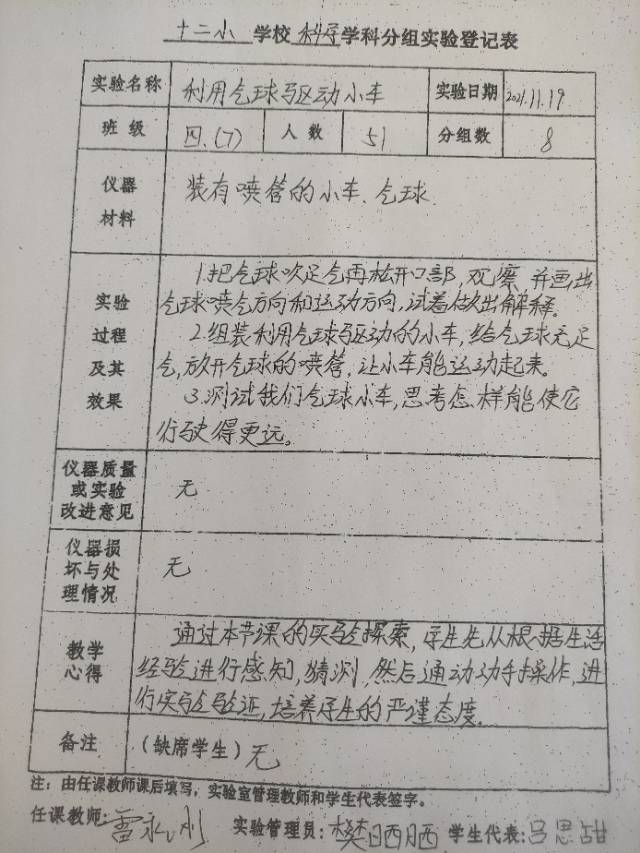 十二小 学校 科学 学科分组实验登记表
实验名称 利用气球驱动小车 实验日期 2021.11.19
班级 四.(7) 人数 51 分组数 8
仪器材料 装有喷管的小车、气球.
实验过程及其效果
1.把气球吹足气再松开口部,观察,并画出
气球喷气方向和运动方向,试着做出解释。
2.组装利用气球驱动的小车,给气球充足
气,放开气球的喷管,让小车能运动起来。
3.测试我们气球小车,思考怎样能使它
行驶得更远。
仪器质量或实验改进意见 无
仪器损坏与处理情况 无
教学心得
通过本节课的实验探索,学生先从根据生活
经验进行感知,猜测,然后通动动手操作,进
行实验验证,培养学生的严谨态度.
备注 (缺席学生) 无
注:由任课教师课后填写,实验室管理教师和学生代表签字。
任课教师: 雷永刚 实验管理员: 樊晒晒 学生代表: 吕思甜